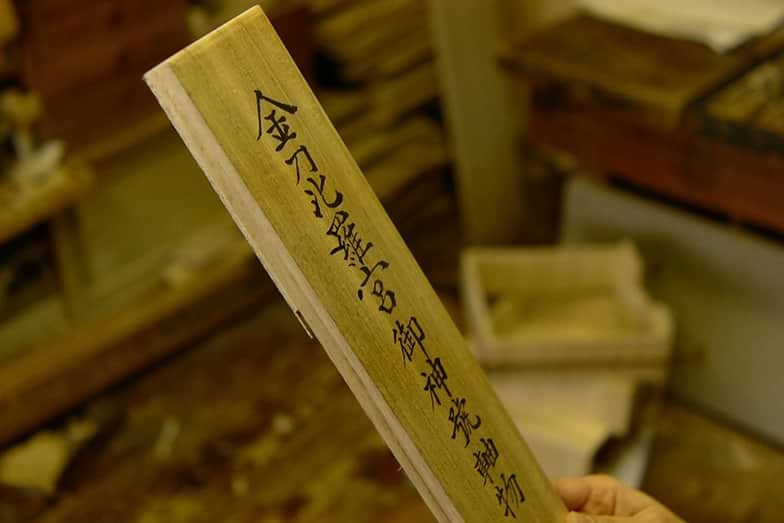 金刀比羅宮御神號軸物